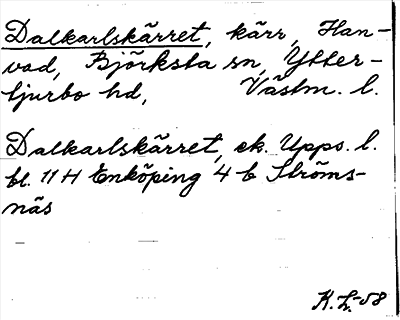 Dalkarlskärret, kärr, Han-
vad, Björksta sn, Ytter-
tjurbo hd, Västm. l.
Dalkarlskärret, ek. Upps. l.
bl. 11 H Enköping 4 b Ströms-
näs
K.L.-58